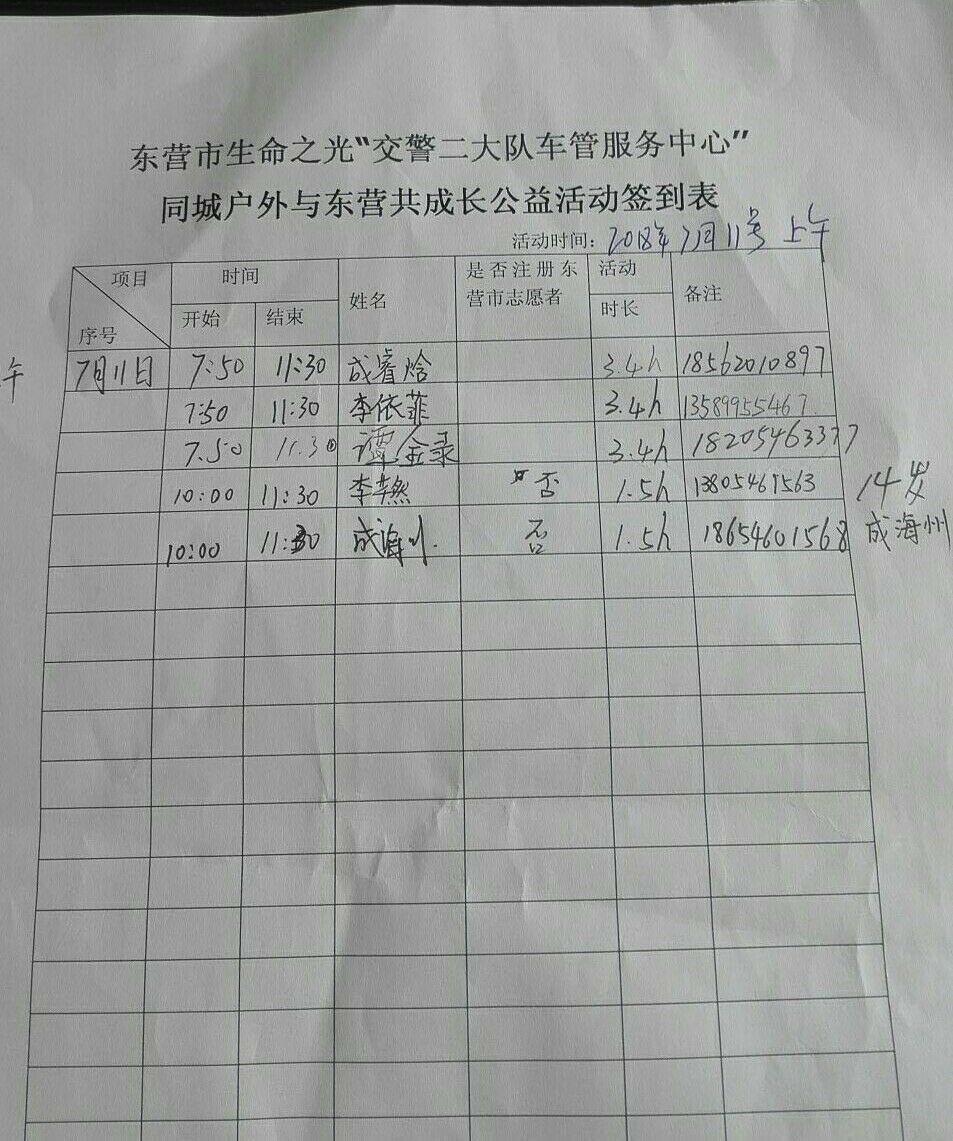 东营市生命之光“交警二大队车管服务中心”
同城户外与东营共成长公益活动签到表
活动时间: 2018年7月11号 上午
项目 时间 姓名 是否注册东 活动 备注
营市志愿者
序号 开始 结束 时长
午 7月11日 7:50 11:30 成睿焓 3.4h 18562010897
7:50 11:30 李依菲 3.4h 13589955467
7.50 11.30 谭金录 3.4h 18205463377
10:00 11:30 李 然 否 1.5h 13805467563 14岁
10:00 11:30 成海州. 否 1.5h 18654601568 成海州